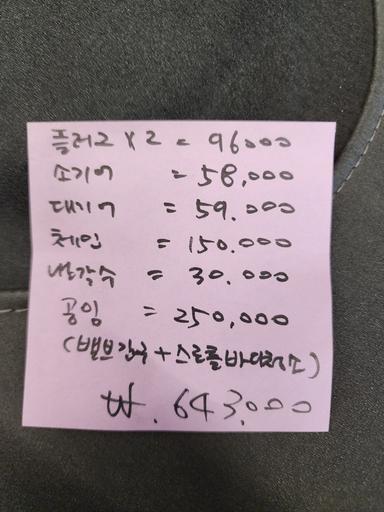 플러그 X 2 = 96000
소기어 = 58,000
대기어 = 59.000
체인 = 150.000
냉각수 = 30.000
공임 = 250,000
(밸브간극 + 스로틀바디청소)
₩. 643.000